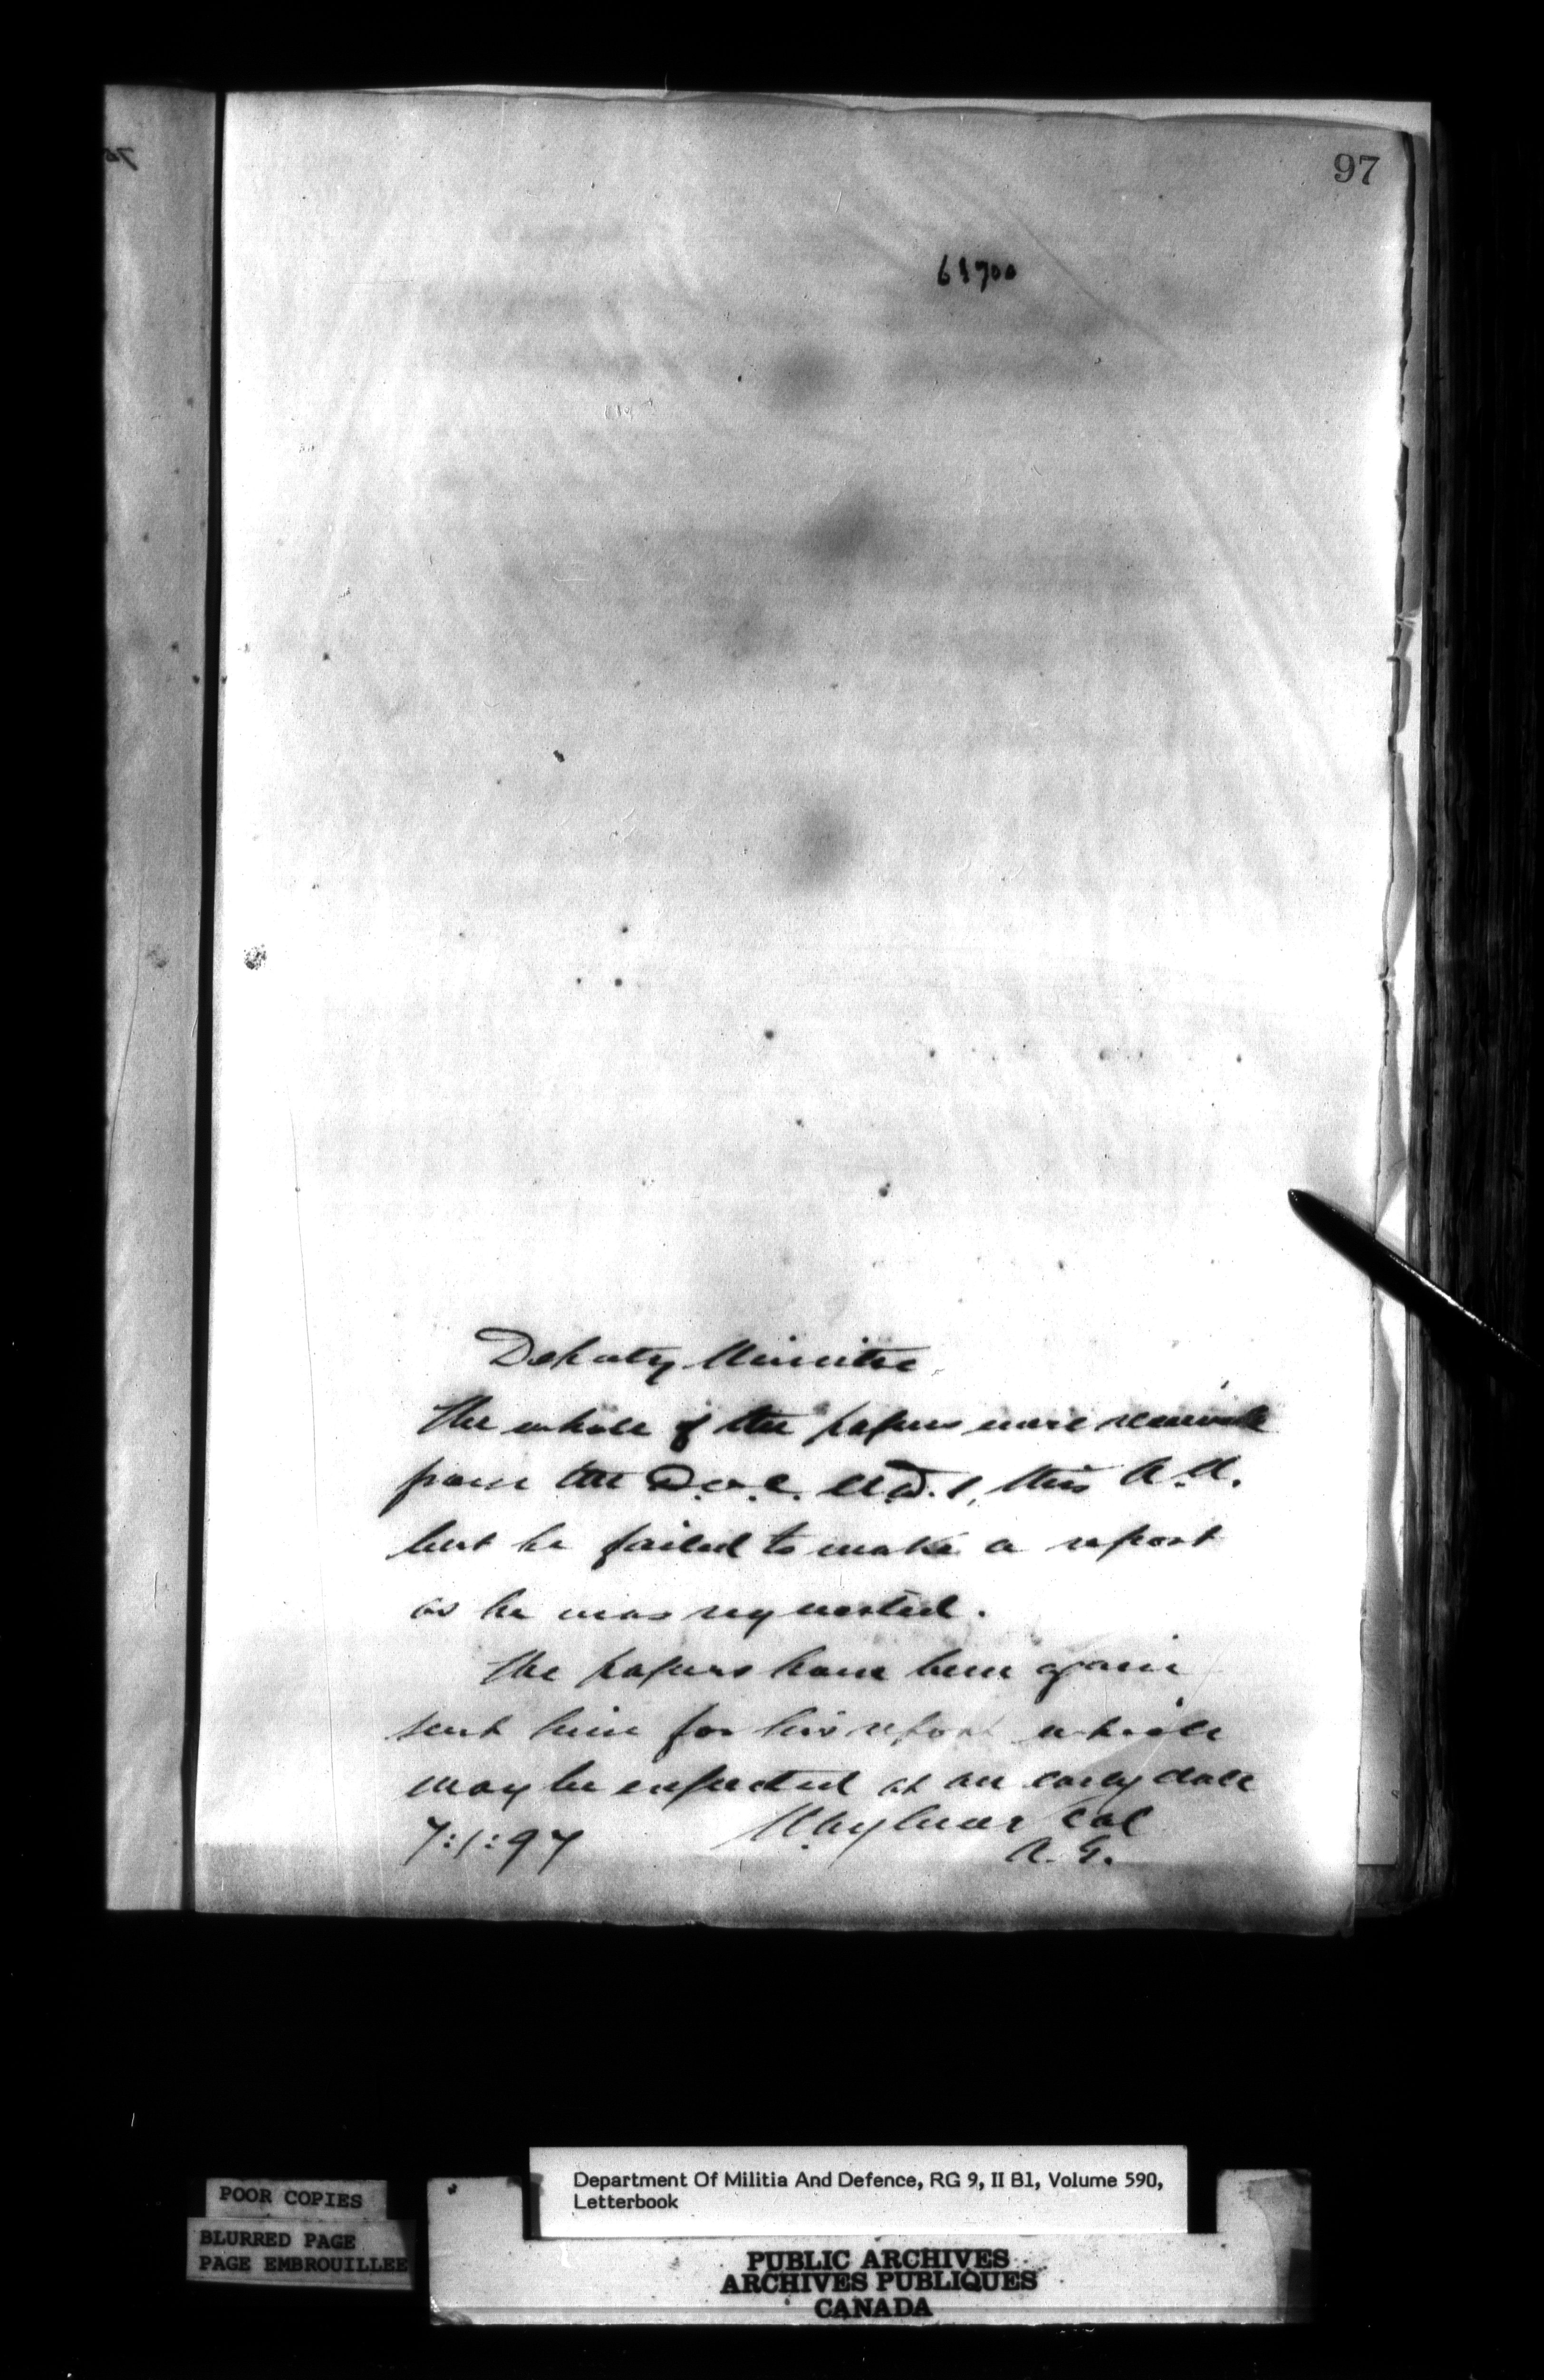 97
61700
Deputy Minister
The whole of the papers were received
from the D.O.C. M.D. 1, this A.M.
but he failed to make a report
as he was requested.
The papers have been again
sent him for his report which
may be expected at an early date
7:1:97 Aylmer Col
A.G.
POOR COPIES
BLURRED PAGE
PAGE EMBROUILLEE
Department Of Militia And Defence, RG 9, II B1, Volume 590,
Letterbook
PUBLIC ARCHIVES
ARCHIVES PUBLIQUES
CANADA